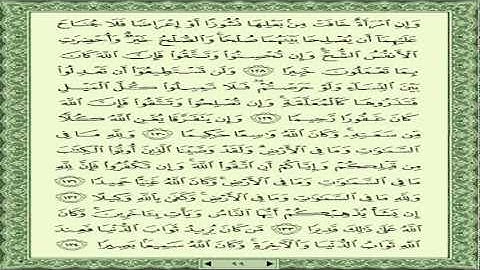 وَإِنِ ٱمْرَأَةٌ خَافَتْ مِنۢ بَعْلِهَا نُشُوزًا أَوْ إِعْرَاضًا فَلَا جُنَاحَ
عَلَيْهِمَآ أَن يُصْلِحَا بَيْنَهُمَا صُلْحًا وَٱلصُّلْحُ خَيْرٌ وَأُحْضِرَتِ
ٱلْأَنفُسُ ٱلشُّحَّ وَإِن تُحْسِنُوا۟ وَتَتَّقُوا۟ فَإِنَّ ٱللَّهَ كَانَ
بِمَا تَعْمَلُونَ خَبِيرًا ١٢٨ وَلَن تَسْتَطِيعُوٓا۟ أَن تَعْدِلُوا۟
بَيْنَ ٱلنِّسَآءِ وَلَوْ حَرَصْتُمْ فَلَا تَمِيلُوا۟ كُلَّ ٱلْمَيْلِ
فَتَذَرُوهَا كَٱلْمُعَلَّقَةِ وَإِن تُصْلِحُوا۟ وَتَتَّقُوا۟ فَإِنَّ ٱللَّهَ
كَانَ غَفُورًا رَّحِيمًا ١٢٩ وَإِن يَتَفَرَّقَا يُغْنِ ٱللَّهُ كُلًّا
مِّن سَعَتِهِۦ وَكَانَ ٱللَّهُ وَٰسِعًا حَكِيمًا ١٣٠ وَلِلَّهِ مَا فِى
ٱلسَّمَٰوَٰتِ وَمَا فِى ٱلْأَرْضِ وَلَقَدْ وَصَّيْنَا ٱلَّذِينَ أُوتُوا۟ ٱلْكِتَٰبَ
مِن قَبْلِكُمْ وَإِيَّاكُمْ أَنِ ٱتَّقُوا۟ ٱللَّهَ وَإِن تَكْفُرُوا۟ فَإِنَّ لِلَّهِ
مَا فِى ٱلسَّمَٰوَٰتِ وَمَا فِى ٱلْأَرْضِ وَكَانَ ٱللَّهُ غَنِيًّا حَمِيدًا ١٣١
وَلِلَّهِ مَا فِى ٱلسَّمَٰوَٰتِ وَمَا فِى ٱلْأَرْضِ وَكَفَىٰ بِٱللَّهِ وَكِيلًا ١٣٢
إِن يَشَأْ يُذْهِبْكُمْ أَيُّهَا ٱلنَّاسُ وَيَأْتِ بِـَٔاخَرِينَ وَكَانَ
ٱللَّهُ عَلَىٰ ذَٰلِكَ قَدِيرًا ١٣٣ مَّن كَانَ يُرِيدُ ثَوَابَ ٱلدُّنْيَا فَعِندَ
ٱللَّهِ ثَوَابُ ٱلدُّنْيَا وَٱلْءَاخِرَةِ وَكَانَ ٱللَّهُ سَمِيعًۢا بَصِيرًا ١٣٤
٩٩